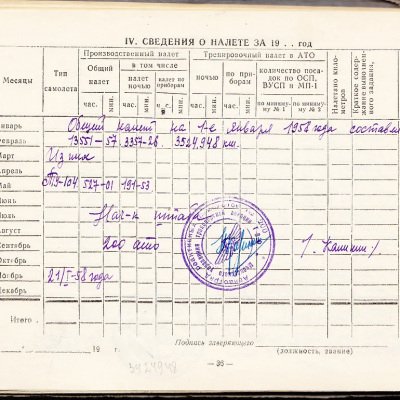 IV. СВЕДЕНИЯ О НАЛЕТЕ ЗА 19 . . год
Месяцы
Тип самолета
Производственный налет
Тренировочный налет в АТО
Налетано километров
Общий налет
в том числе
ночью
по приборам
количество посадок по ОСП, ВУСП и МП-1
налет ночью
налет по приборам
по миниму № 1
по миниму № 2
час. мин. час. мин. час. мин. час. мин. час. мин.
Январь Общий налет на 1-е января 1958 года составил
Февраль 13551-57. 3357-28 3524,948 км.
Март Из них
Апрель
Май ТУ-104 527-01 191-53
Июнь
Июль Нач-к штаба
Август
Сентябрь 200 ато / Калинин /
Октябрь
Ноябрь 21/I-58 года
Декабрь
Итого .
19 г.
Подпись заверяющего
(должность, звание)
— 36 —
3524948